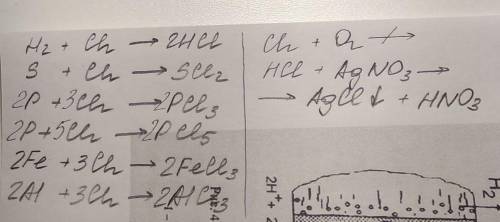 H₂ + Cl₂ → 2HCl
S + Cl₂ → SCl₂
2P + 3Cl₂ → 2PCl₃
2P + 5Cl₂ → 2PCl₅
2Fe + 3Cl₂ → 2FeCl₃
2Al + 3Cl₂ → 2AlCl₃
Cl₂ + O₂ ↛
HCl + AgNO₃ →
→ AgCl↓ + HNO₃
H₂
2H⁺